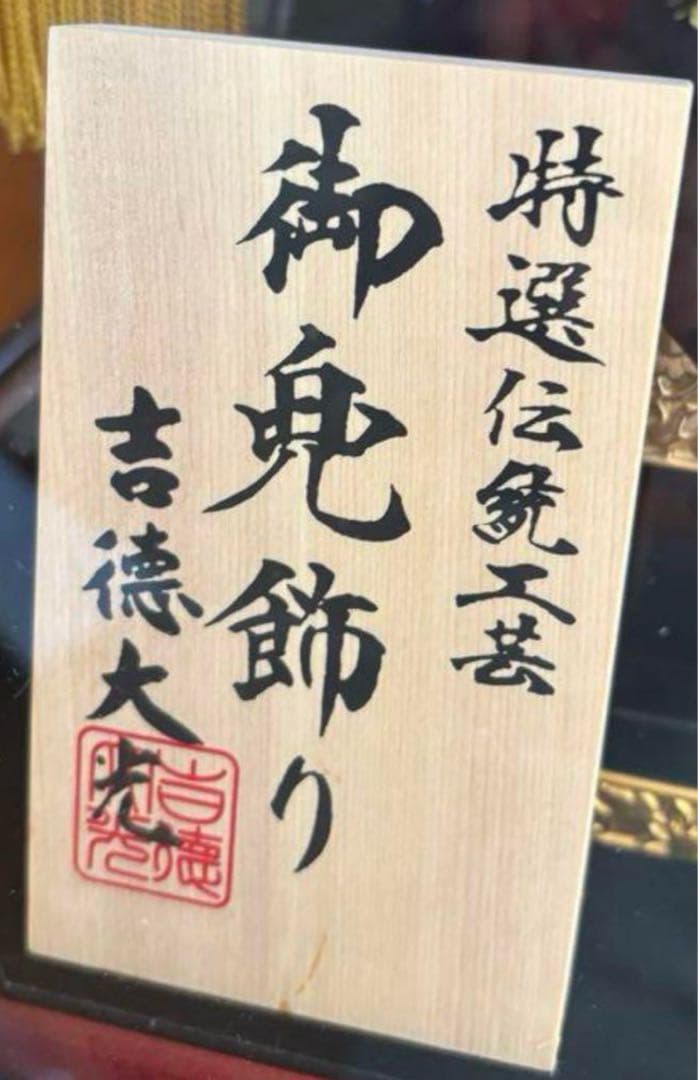 特選伝統工芸
御兜飾り
吉德大光